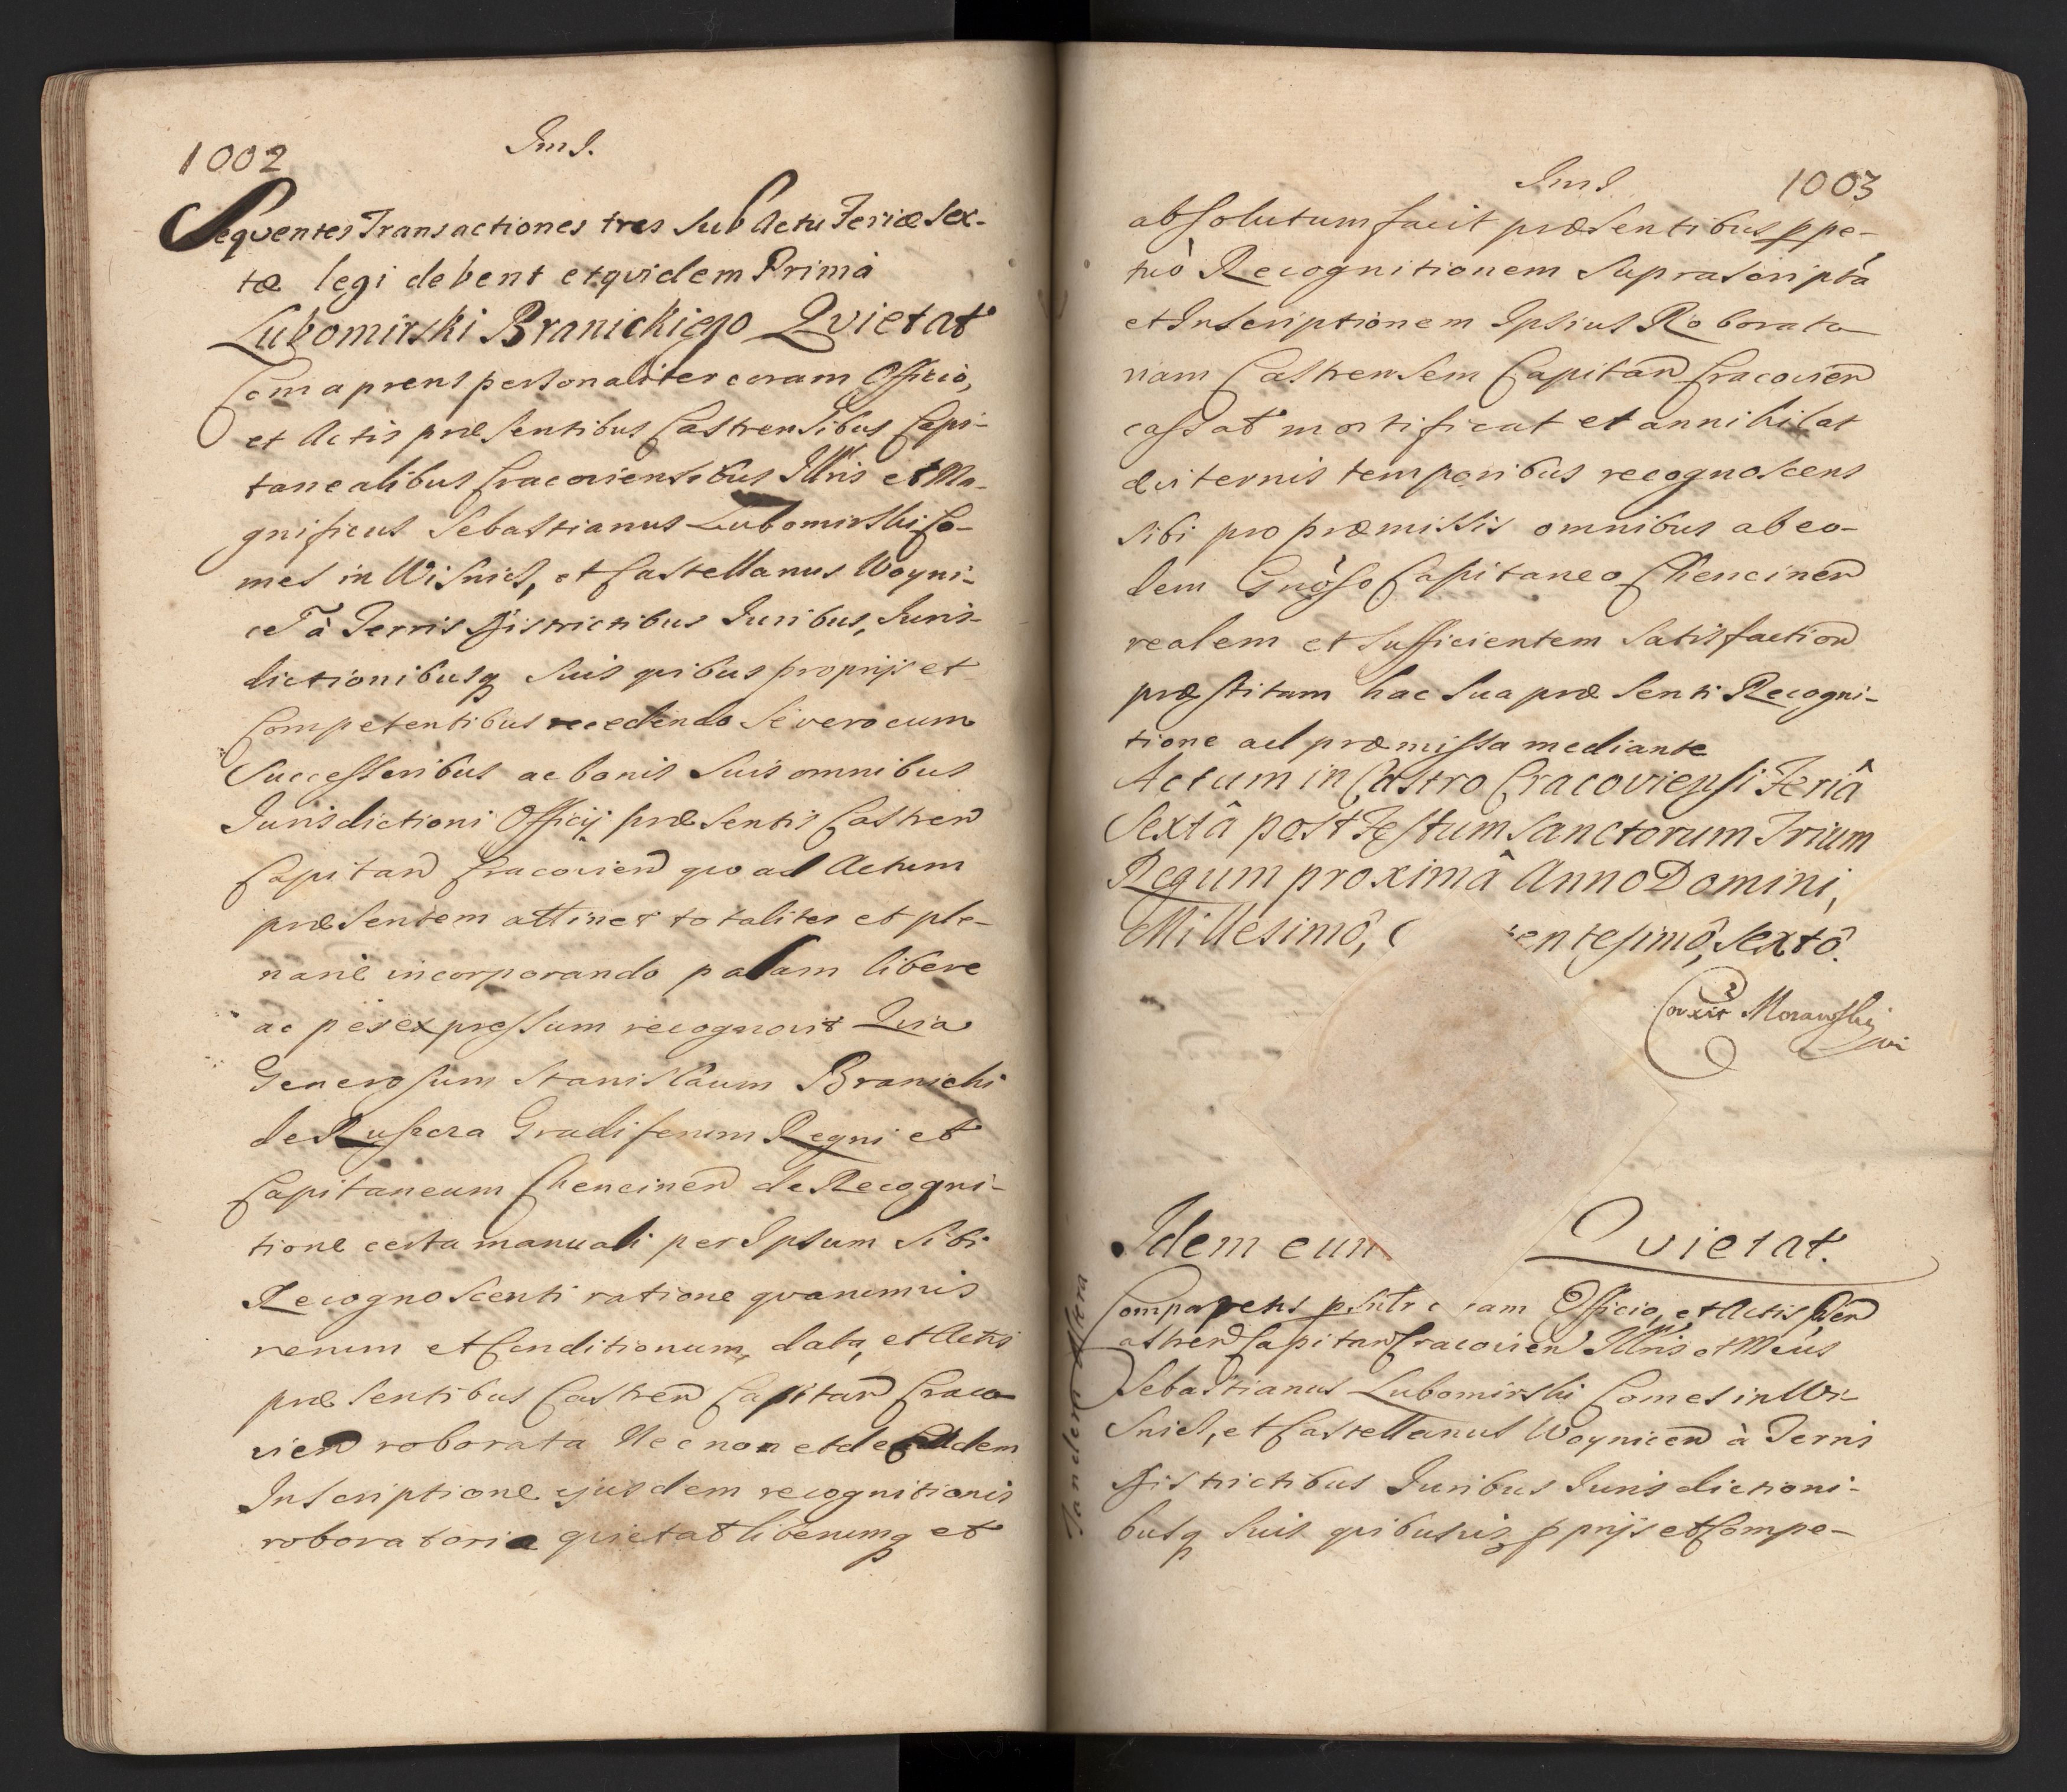 1002
Sequentes Transactiones tres sub Actu Feriæ sex-
tæ legi debent et qvidem Prima
Lubomirski Branickiego Qvietat
Comaprens personaliter coram Officio,
et Actis præsentibus Castrensibus Capi-
tanealibus Cracoviensibus Illris et Ma-
gnificus Sebastianus Lubomirski Co-
mes in Wisnicz, et Castellanus Woyni-
à Terris Districtibus Juribus, Juris-
dictionibusq suis quibus proprijs et
Competentibus recedendo se vero cum
Successoribus ac bonis suis omnibus
Jurisdictioni Officij præsentis Castren
Capitan Cracovien quo ad Actum
præsentem attinet totaliter et ple-
narie incorporando palam libere
ac per expressum recognovit Quia
Generosum Stanislaum Branicki
de Ruszcza Gladiferum Regni et
Capitaneum Chencinen de Recogni-
tione certa manuali per Ipsum sibi
Recognoscenti ratione quarumvis
rerum et Conditionum, data, et Actis
præsentibus Castren Capitan Craco-
vien roborata Nec non et de Eadem
Inscriptione ejusdem recognitionis
roboratoria quietat liberumq et
1003
absolutum facit præsentibus ppe-
tuò Recognitionem suprascriptã
et Inscriptionem Ipsius Roborato-
riam Castrensem Capitan Cracovien
cassat mortificat et annihilat
æviternis temporibus recognoscens
sibi pro præmissis omnibus ab eo-
dem Gnòso Capitaneo Chencinen
realem et sufficientem satisfaction
præstitam hac sua præsenti Recogni-
tione ad præmissa mediante
Actum in Castro Cracoviensi Feriâ
Sextâ post Festum Sanctorum Trium
Regum proximâ Anno Domini,
Millesimô, entesimô, Sextô.
Corxit Morawski
Idem eun Qvietat.
Comparens psnlr ram Officio, et Actis Pen
astren Capitan Cracovien Illris et Mcus
Sebastianus Lubomirski Comes in Wi-
snicz, et Castellanus Woynicen à Terris
Districtibus Juribus Jurisdictioni-
busq suis quibusvis pprijs et Compe-